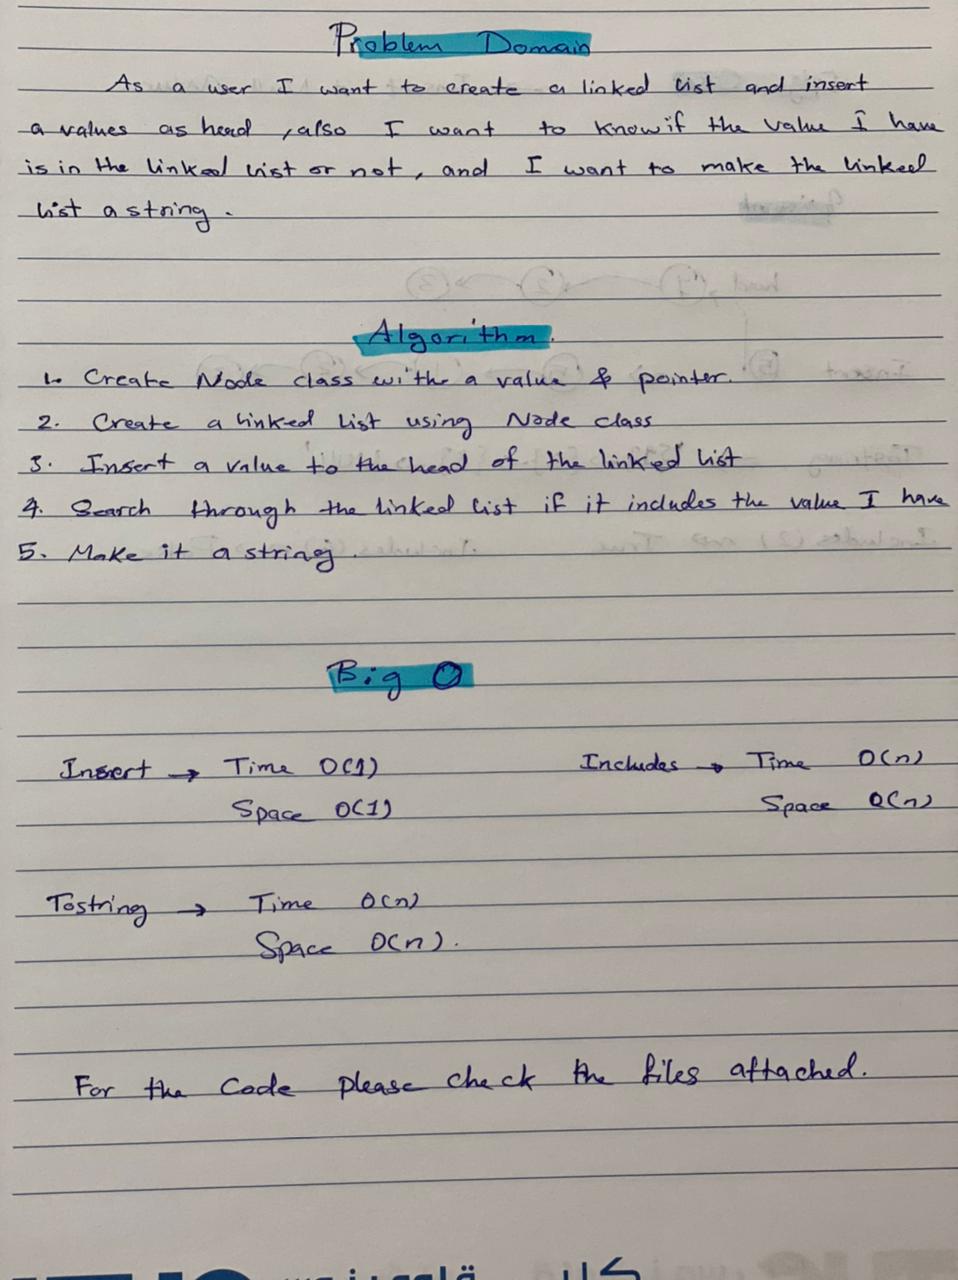 Problem Domain
As a user I want to create a linked list and insert
a values as head, also I want to know if the value I have
is in the linked list or not, and I want to make the linked
list a string.
Algorithm.
1. Create Node class with a value & pointer.
2. Create a linked list using Node class
3. Insert a value to the head of the linked list
4. Search through the linked list if it includes the value I have
5. Make it a string.
Big O
Insert → Time O(1) Includes → Time O(n)
Space O(1) Space O(n)
Tostring → Time O(n)
Space O(n).
For the Code please check the files attached.